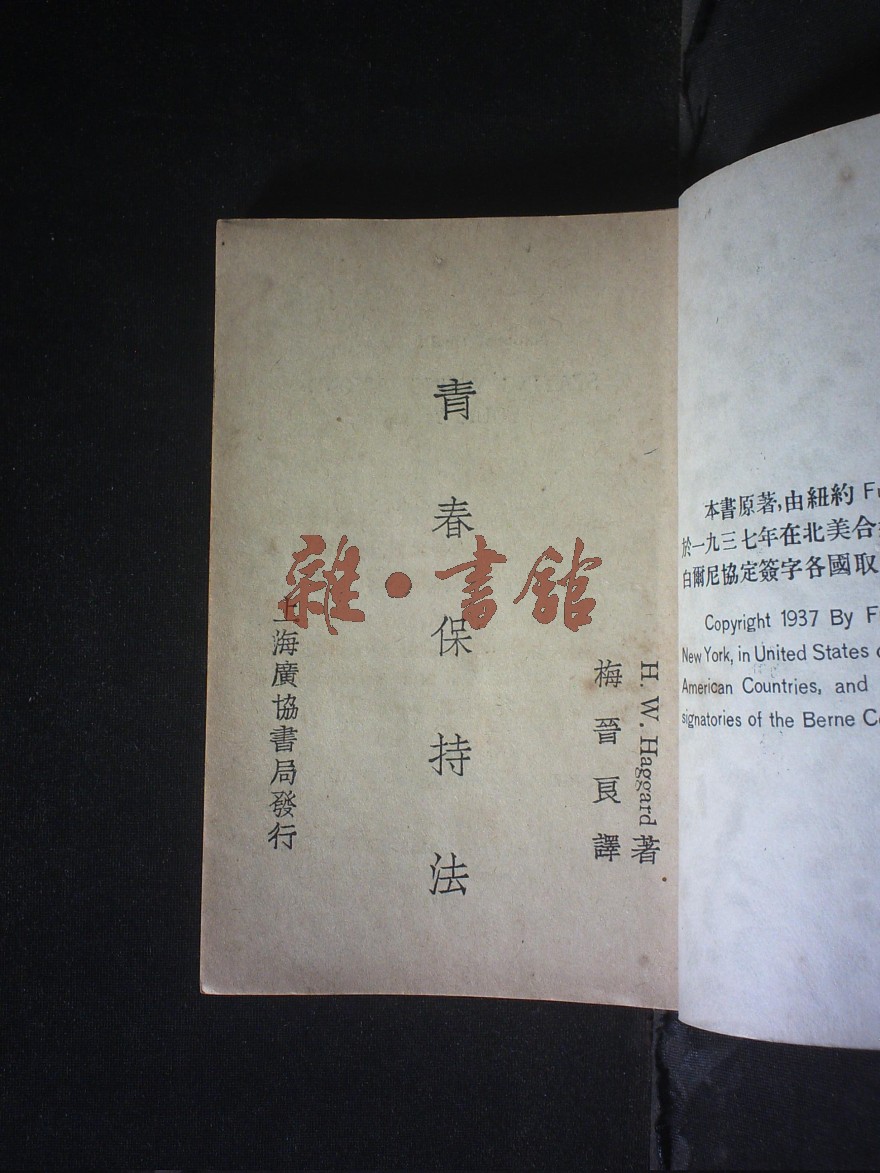 H. W. Haggard 著
梅晉良譯
青春保持法
上海廣協書局發行
雜·書館
本書原著,由紐約
於一九三七年在北美合
白爾尼協定簽字各國取
Copyright 1937 By
New York, in United States
American Countries, and
signatories of the Berne